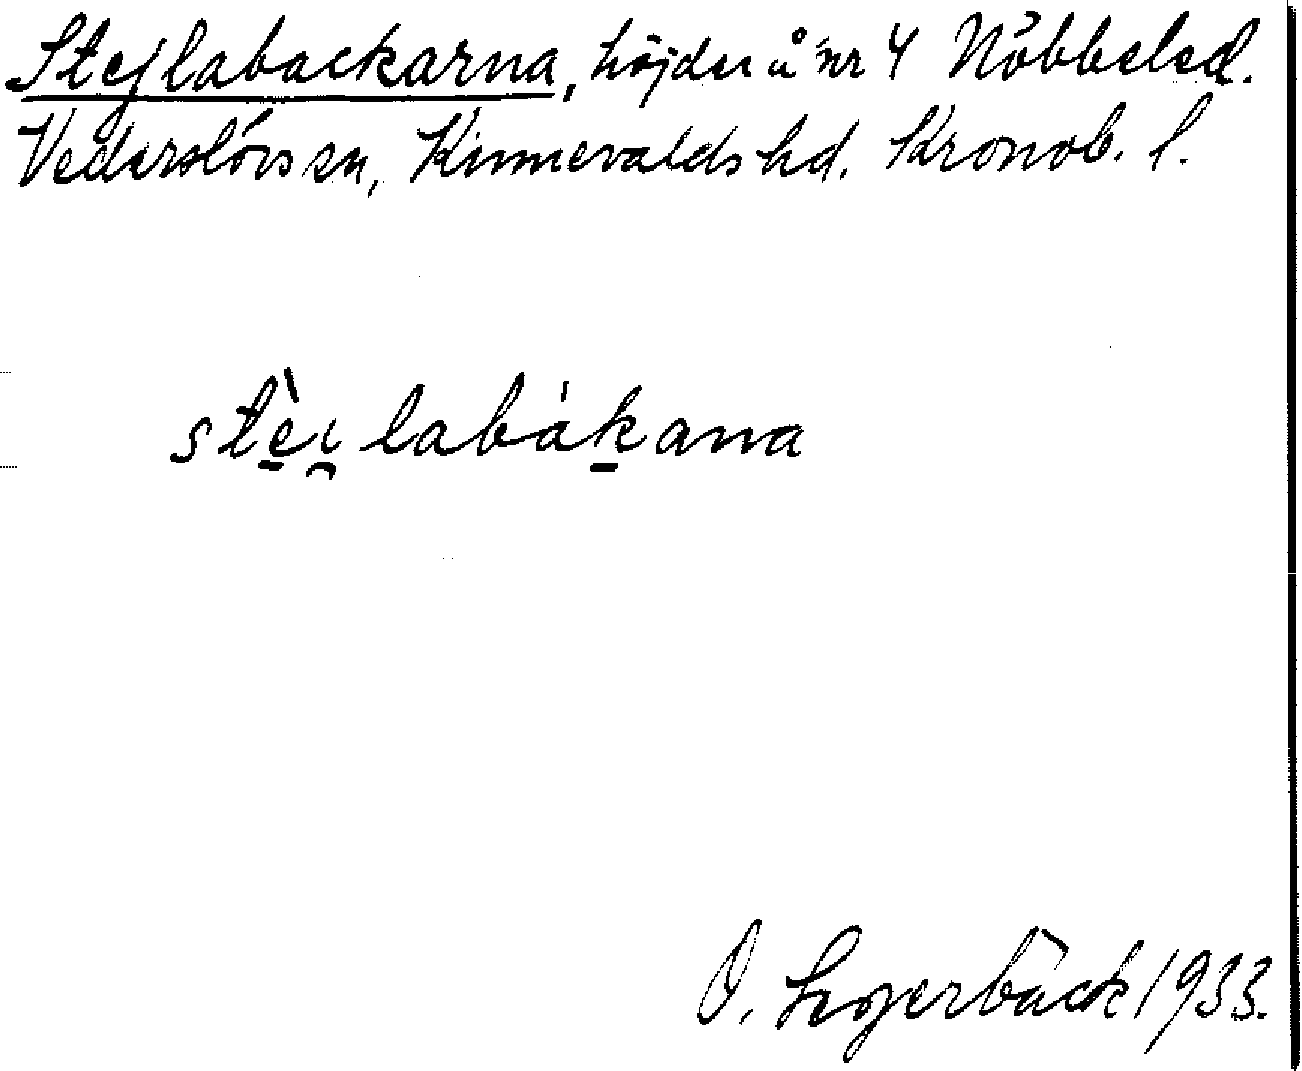 Stejlabackarna, höjder å nr 4 Nöbbeled.
Vederslövs sn, Kinnevalds hd. Kronob. l.
stèi̯labákana
O. 1933.